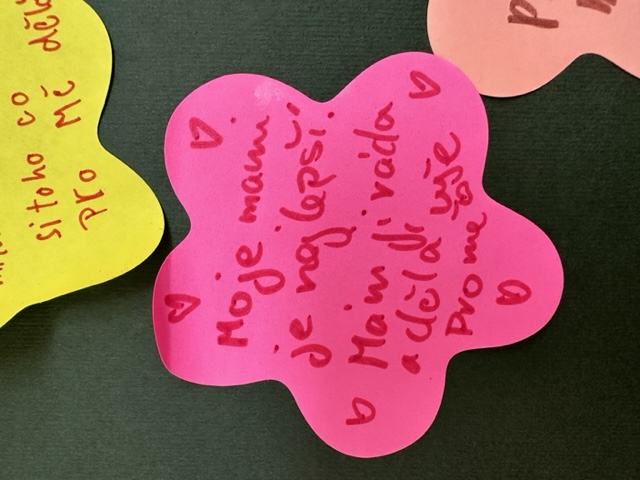 si toho co
pro Mě
Moje mami
je nejlepší!
Mám ji ráda
a děla vše
pro mě